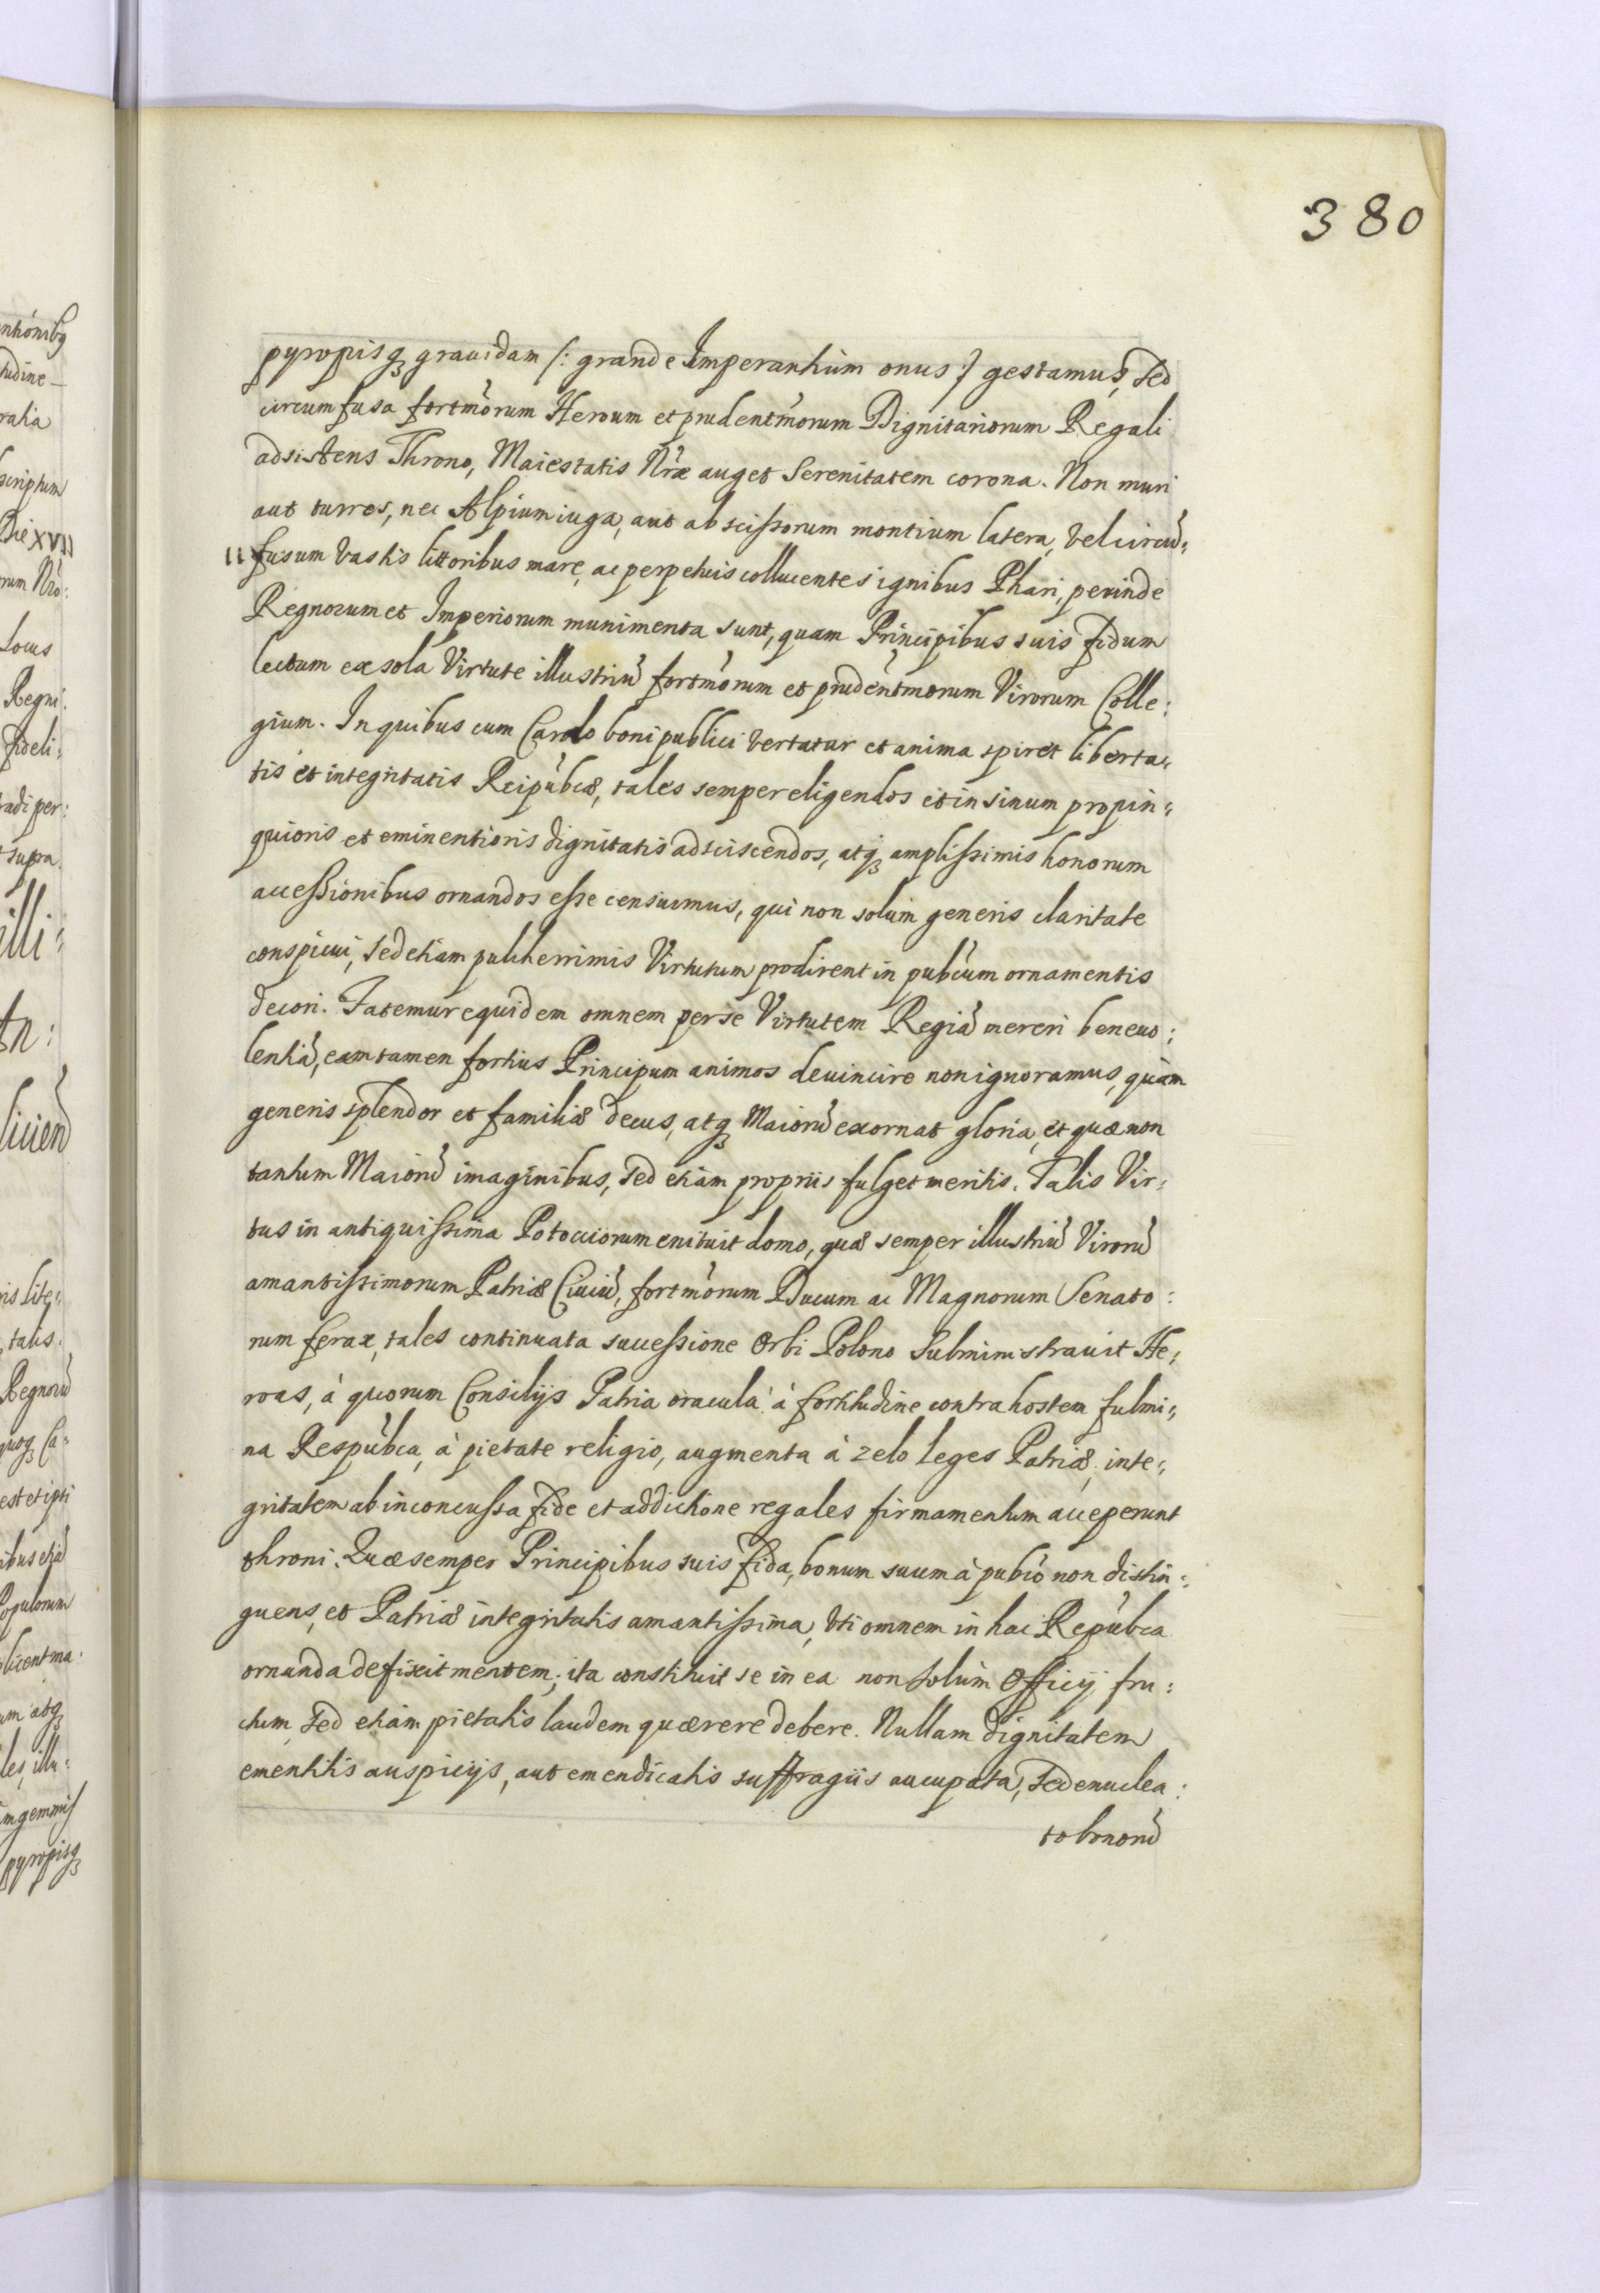 380
pyropisq grauidam /: grande Imperantium onus :/ gestamus, sed
circumfusa fortmorum Heroum et prudentmorum Dignitariorum Regali
adsistens Throno, Maiestatis Nræ auget Serenitatem corona. Non muri
aut turres, nec Alpium iuga, aut abscissorum montium latera, vel circū„
„fusum vastis littoribus mare, ac perpetuis collucentes ignibus Phari, perinde
Regnorum et Imperiorum munimenta sunt, quam Principibus suis fidum
lectum ex sola Virtute illustriū fortmorum et prudentmorum Virorum Colle:
gium. In quibus cum Cardo boni publici vertatur et anima spiret liberta„
tis et integritatis Reipubcæ, tales semper eligendos et in sinum propin„
quioris et eminentioris dignitatis adsciscendos, atq amplissimis honorum
accessionibus ornandos esse censuimus, qui non solum generis claritate
conspicui, sed etiam pulcherrimis Virtutum prodirent in pubcum ornamentis
decori. Fatemur equidem omnem per se Virtutem Regiā mereri beneuo:
lentiā, eam tamen fortius Principum animos deuincire non ignoramus, quàm
generis splendor et familiæ decus, atq Maiorū exornat gloria, et quæ non
tantum Maiorū imaginibus, sed etiam propriis fulget meritis. Talis Vir„
tus in antiquissima Potocciorum enituit domo, quæ semper illustriū Virorū
amantissimorum Patriæ Ciuiū, fortmorum Ducum ac Magnorum Senato:
rum ferax, tales continuata successione Orbi Polono subministrauit He„
roas, à quorum Consilijs Patria oracula à fortitudine contra hostem fulmi„
na Respubca, à pietate religio, augmenta à zelo leges Patriæ, inte„
gritatem ab inconcussa fide et addictione regales firmamentum acceperunt
throni. Quæ semper Principibus suis fida, bonum suum à pubco non distin„
guens, et Patriæ integritatis amantissima, vti omnem in hac Repubca
ornanda defixit mentem, ita constituit se in ea non solùm Officij fru:
ctum, sed etiam pietatis laudem quærere debere. Nullam dignitatem
ementitis auspicijs, aut emendicatis suffragiis aucupata, sed enuclea:
to bonorū